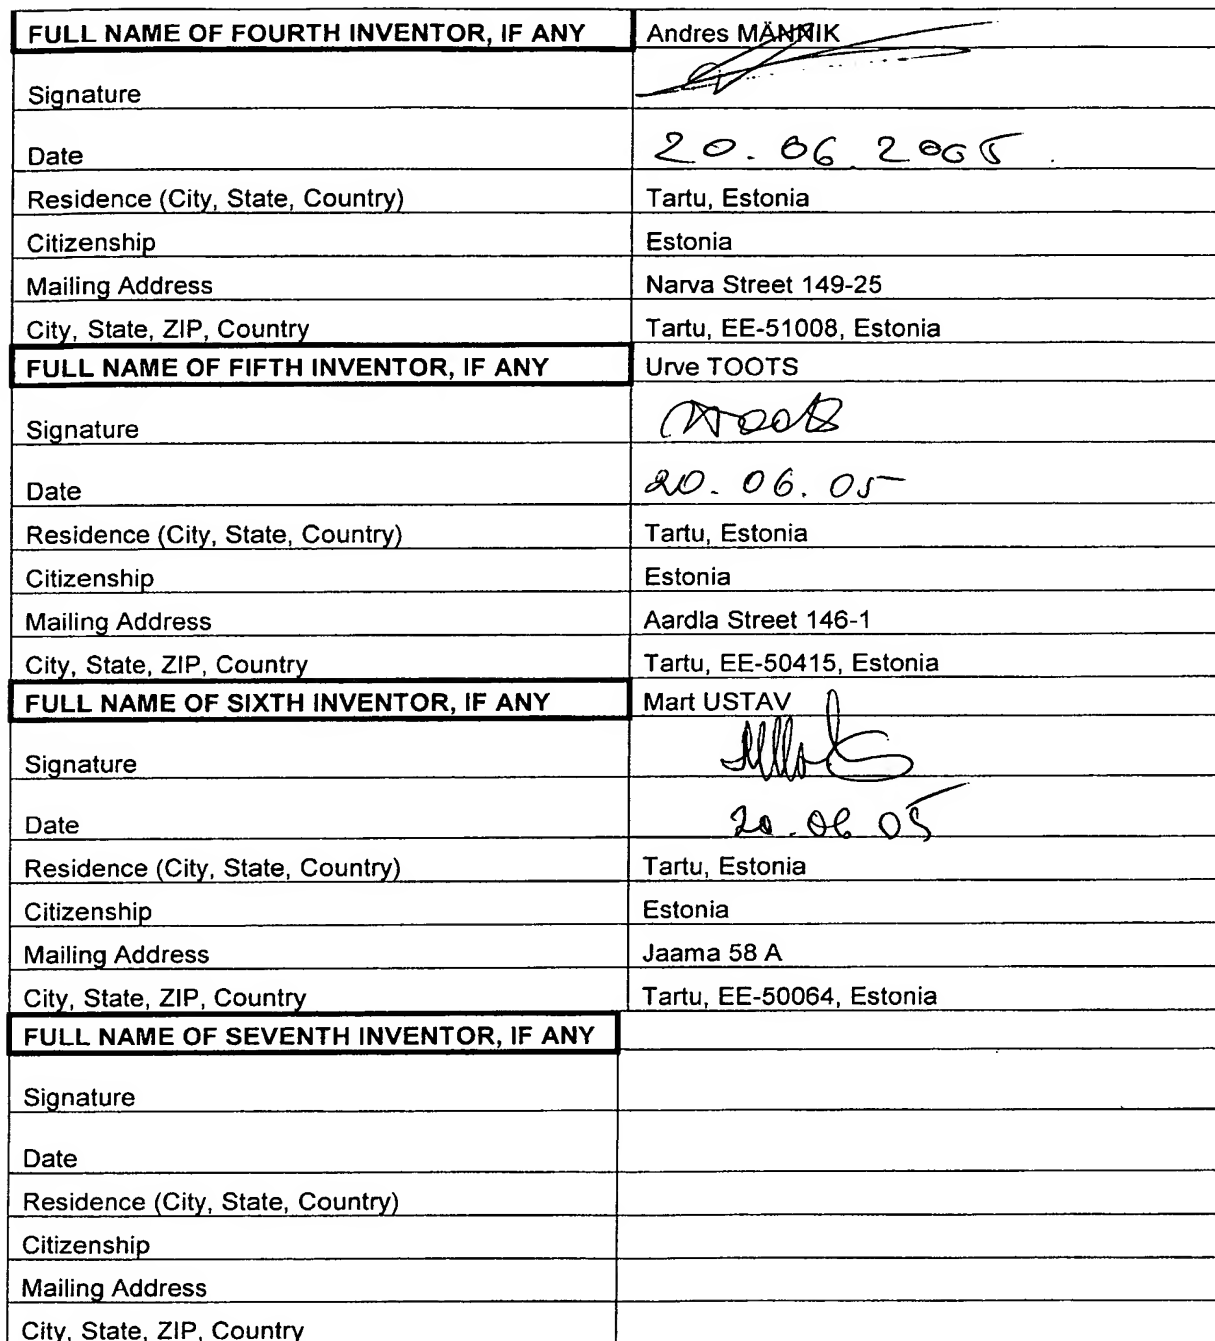 FULL NAME OF FOURTH INVENTOR, IF ANY Andres MÄNNIK
Signature
Date 20.06.2005
Residence (City, State, Country) Tartu, Estonia
Citizenship Estonia
Mailing Address Narva Street 149-25
City, State, ZIP, Country Tartu, EE-51008, Estonia
FULL NAME OF FIFTH INVENTOR, IF ANY Urve TOOTS
Signature
Date 20.06.05
Residence (City, State, Country) Tartu, Estonia
Citizenship Estonia
Mailing Address Aardla Street 146-1
City, State, ZIP, Country Tartu, EE-50415, Estonia
FULL NAME OF SIXTH INVENTOR, IF ANY Mart USTAV
Signature
Date 20.06.05
Residence (City, State, Country) Tartu, Estonia
Citizenship Estonia
Mailing Address Jaama 58 A
City, State, ZIP, Country Tartu, EE-50064, Estonia
FULL NAME OF SEVENTH INVENTOR, IF ANY
Signature
Date
Residence (City, State, Country)
Citizenship
Mailing Address
City, State, ZIP, Country